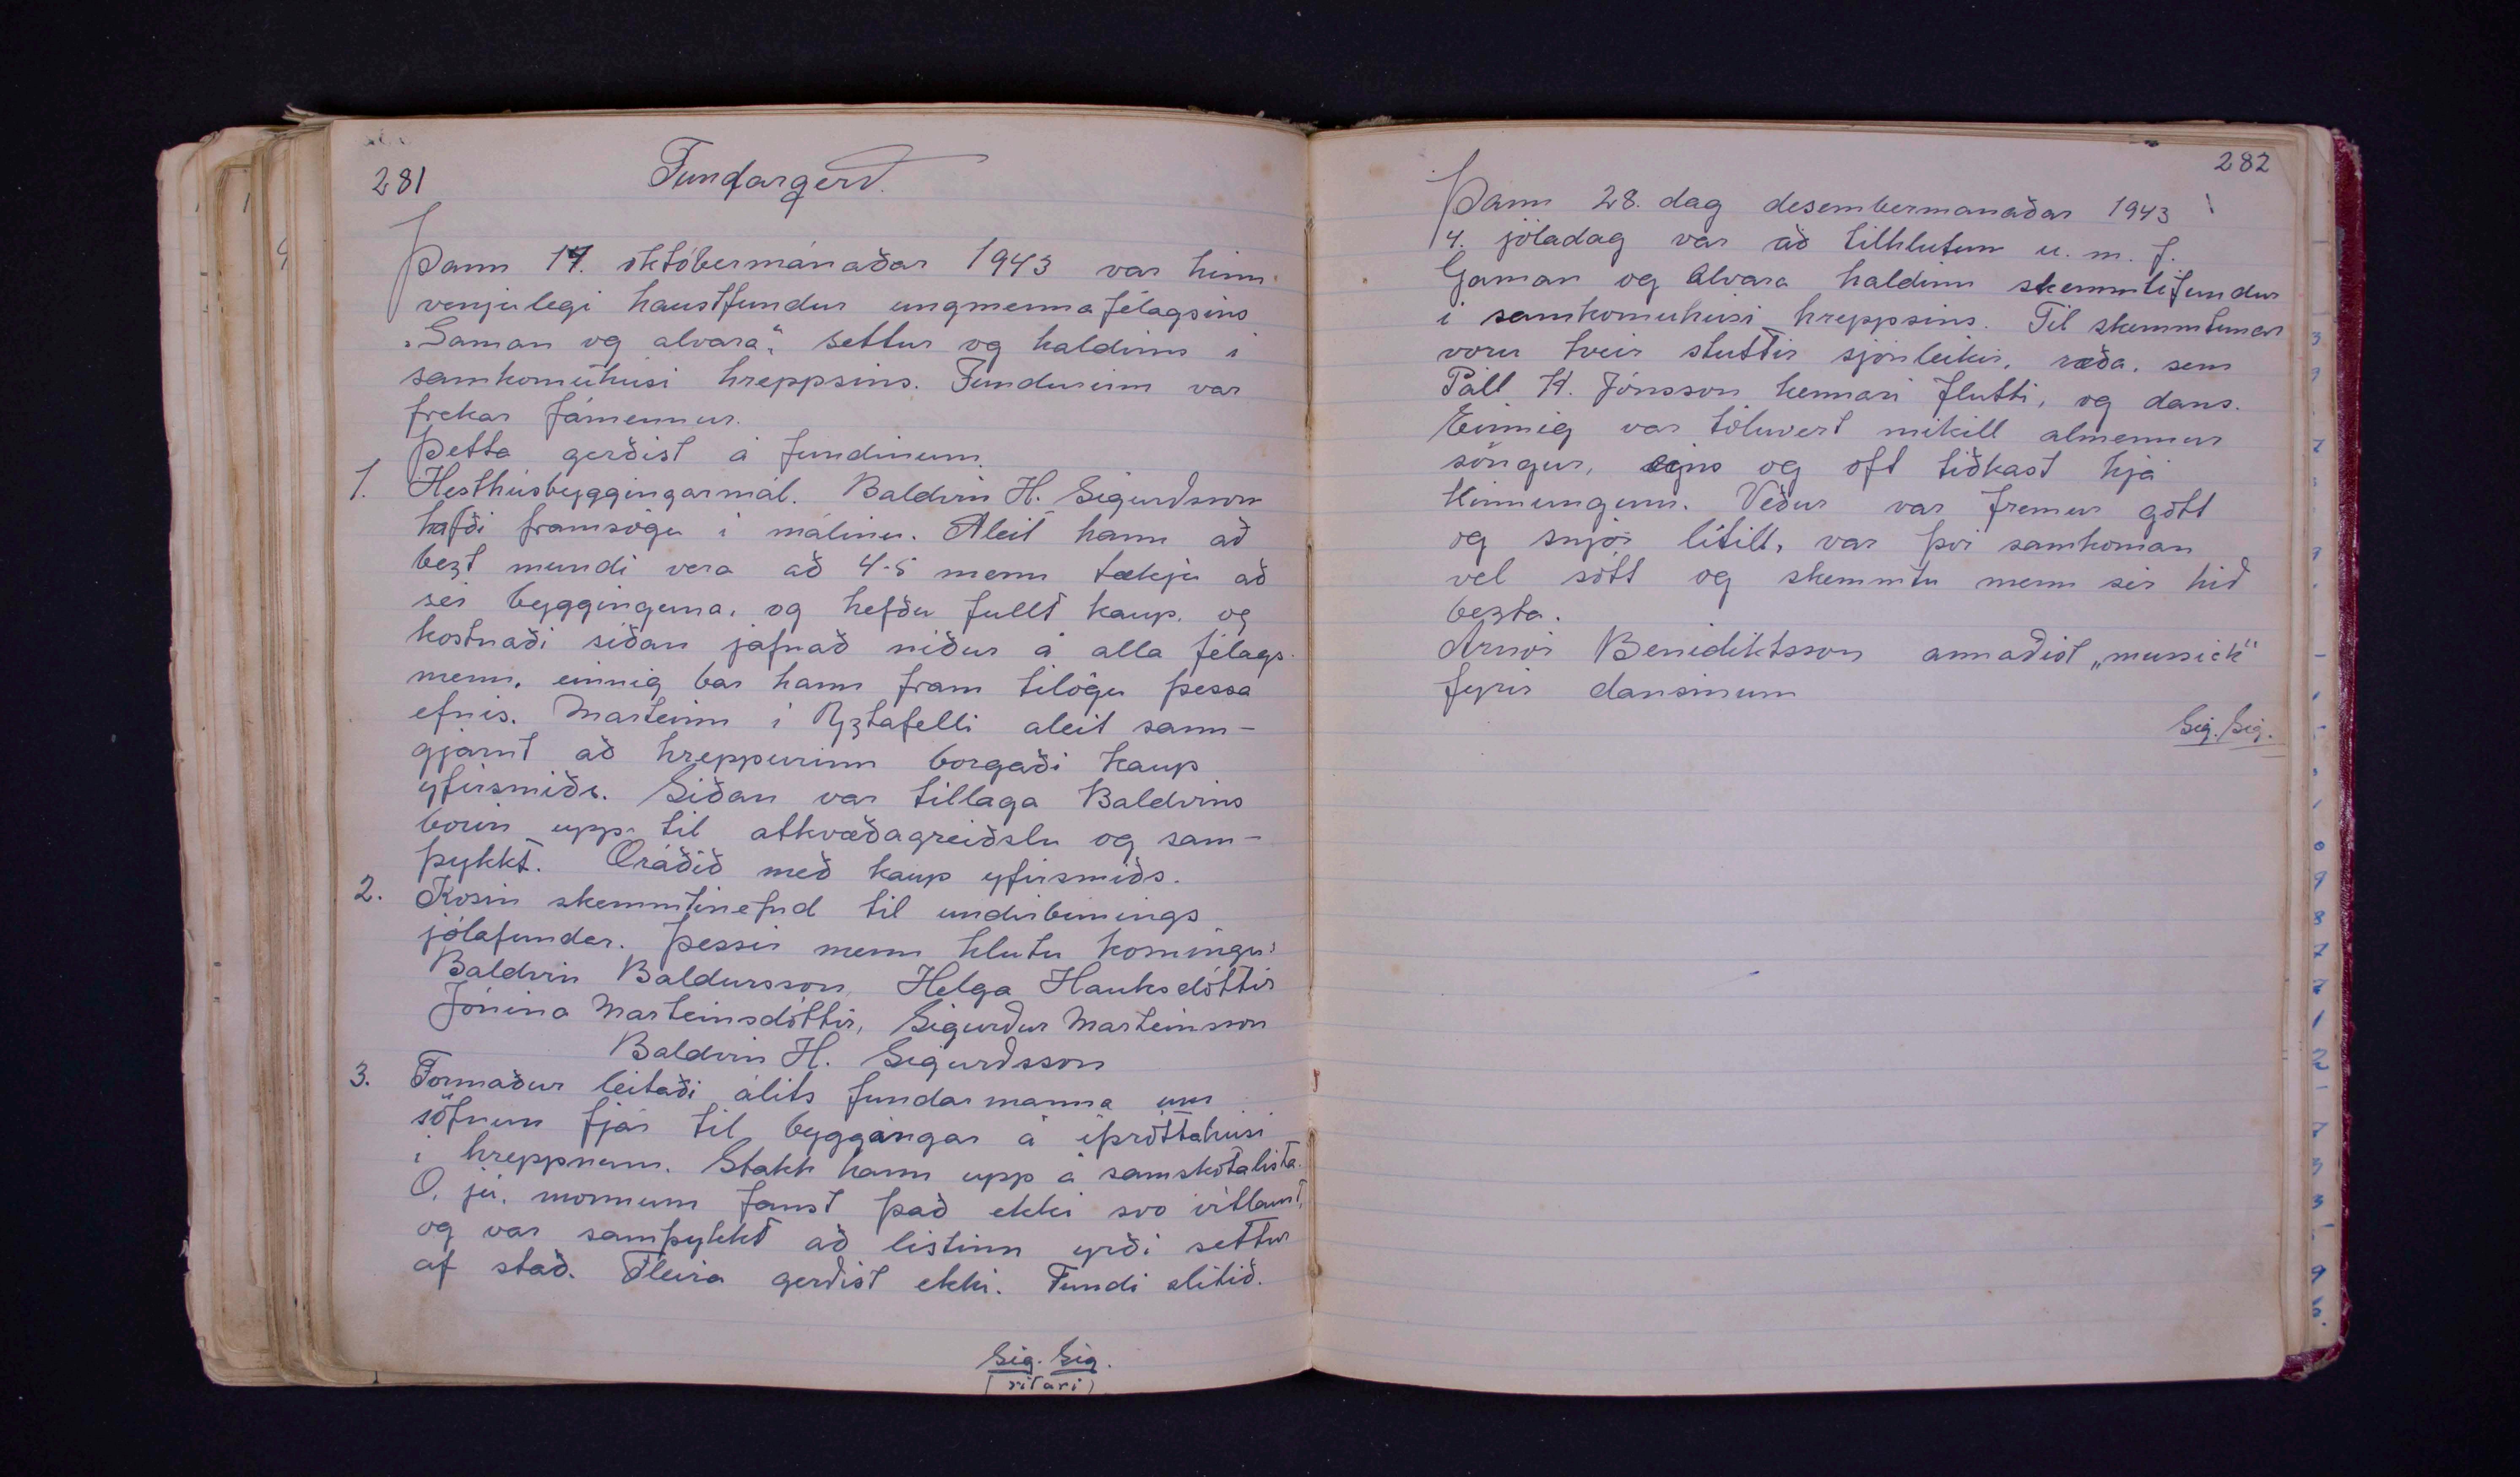 281
Fundargerð.
Þann 17. októbermánaðar 1943 var hinn
venjulegi haustfundur ungmennafélagsins
„Gaman og alvara" settur og haldinn i
samkomuhúsi hreppsins. Fundurinn var
frekar fámennur.
Þetta gerðist á fundinum.
1. Hesthúsbyggingarmál. Baldvin H. Sigurðsson
hafði framsögu i málinu. Áleit hann að
bezt mundi vera að 4-5 menn tækju að
sér bygginguna, og hefðu fullt kaup, og
kostnaði siðan jafnað niður á alla félags-
menn, einnig bar hann fram tilögu þessa
efnis. Marteinn i Yztafelli aleit sann-
gjarnt að hreppurinn borgaði kaup
yfirsmiðs. Siðan var tillaga Baldvins
borin upp til atkvæðagreiðslu og sam-
þykkt. Óráðið með kaup yfirsmiðs.
2. Kosin skemmtinefnd til undirbunings
jólafundar. Þessir menn hlutu kosningu:
Baldvin Baldursson, Helga Hauksdóttir
Jónina Marteinsdóttir, Sigurður Marteinsson
Baldvin H. Sigurðsson
3. Formaður leitaði álits fundarmanna um
söfnun fjár til byggingar á iþróttahúsi
i hreppnum. Stakk hann upp á samskotalista.
Ó, jú, mönnum fanst það ekki svo vitlaust,
og var samþykkt að listinn yrði settur
af stað. Fleira gerðist ekki. Fundi slitið.
Sig. Sig.
(ritari)
282
Þann 28. dag desembermanaðar 1943
4. jóladag var að tilhlutun u. m. f.
Gaman og Alvara haldinn skemmtifundur
i samkomuhúsi hreppsins. Til skemmtunar
voru tveir stuttir sjónleikir, ræða, sem
Páll H. Jónsson kennari flutti, og dans.
Einnig var töluvert mikill almennur
söngur, eins og oft tiðkast hjá
Kinnungum. Veður var fremur gótt
og snjór litill, var þvi samkoman
vel sótt og skemmtu menn sér hið
bezta.
Arnór Benediktsson annaðist „mussick"
fyrir dansinum
Sig. Sig.